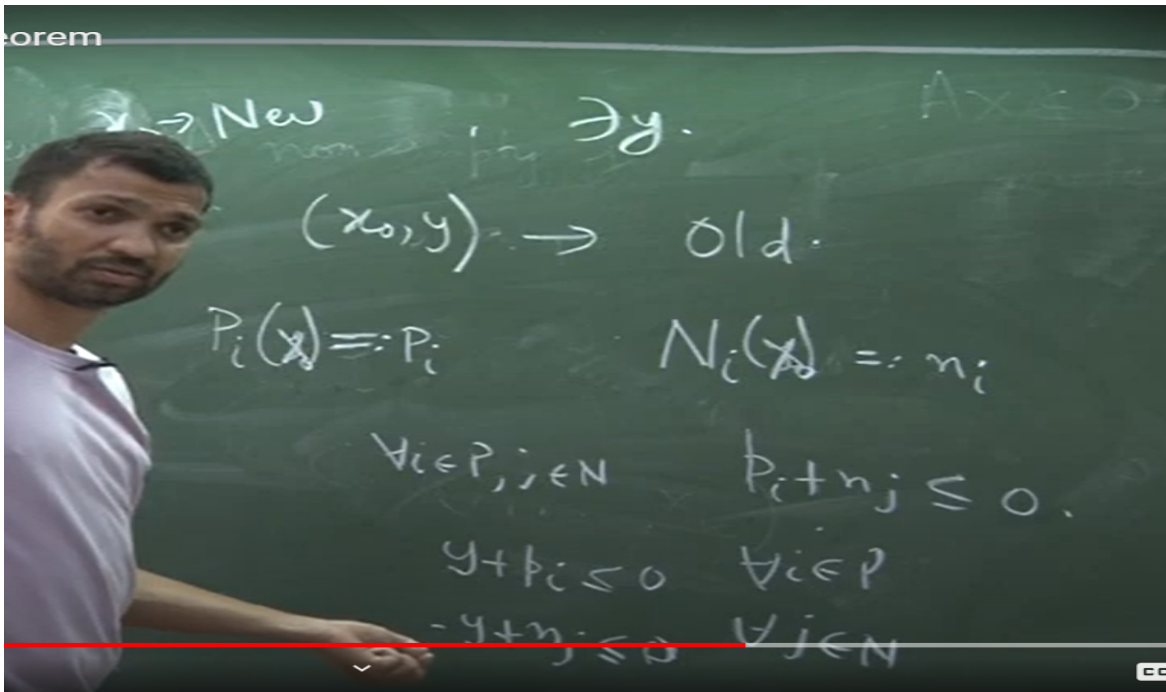 eorem
x₀ → New ∃y.
(x₀, y) → Old.
Pᵢ(x₀) =: pᵢ Nᵢ(x₀) =: nᵢ
∀i∈P, j∈N pᵢ + nⱼ ≤ 0.
y + pᵢ ≤ 0 ∀i∈P
-y + nⱼ ≤ 0 ∀j∈N
Ax ≤ 0
CC